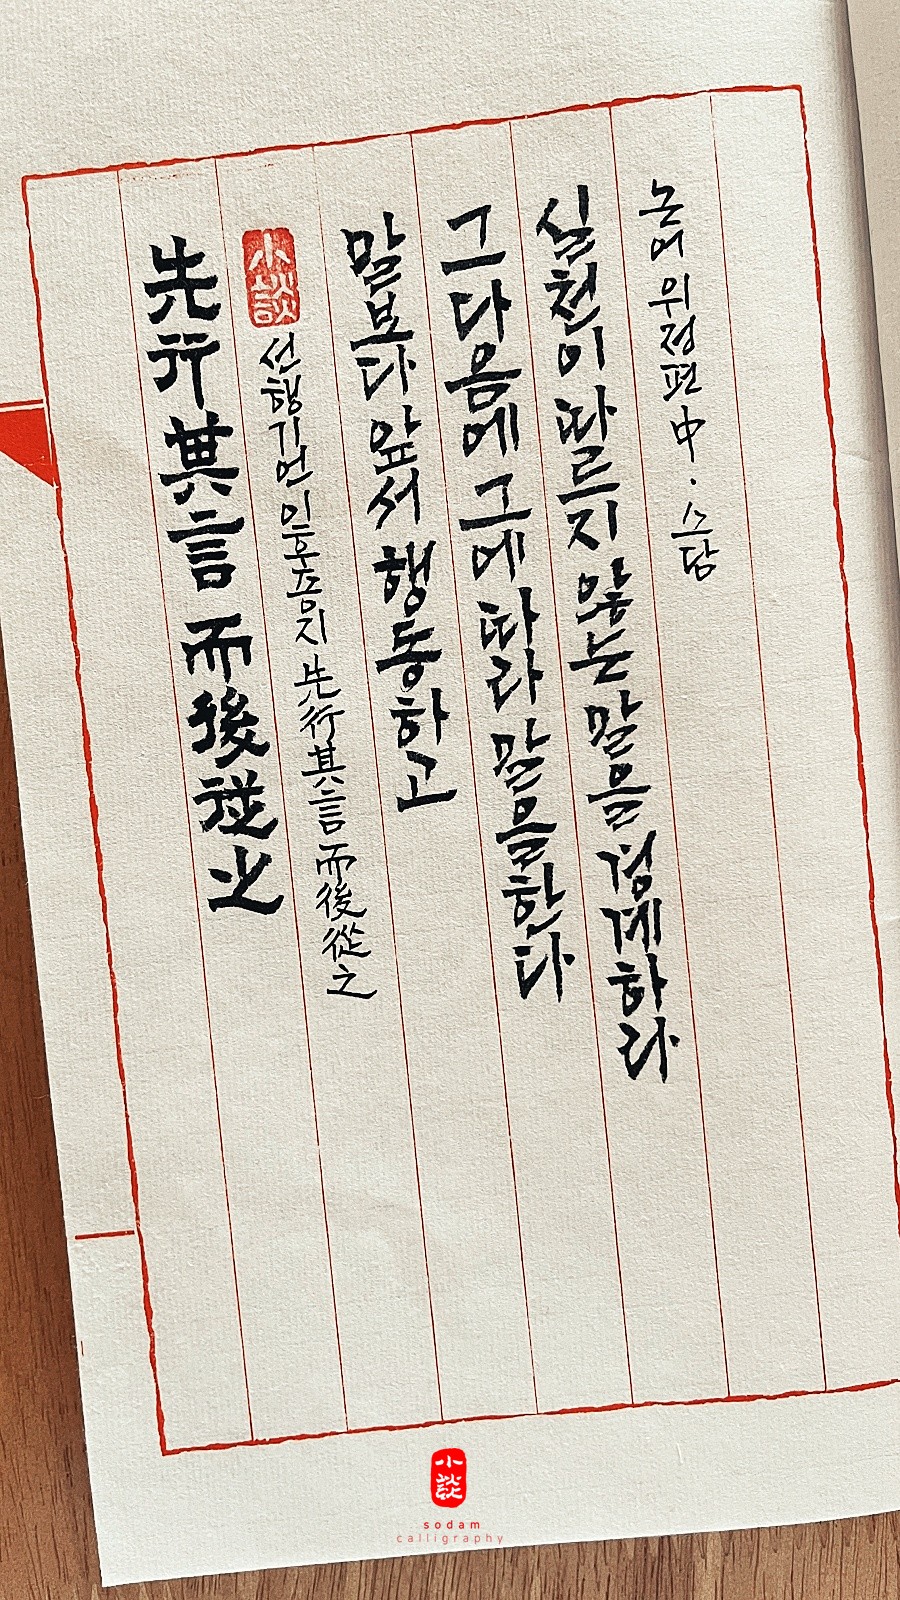 先行其言 而後從之
小談
선행기언 이후종지 先行其言 而後從之
말보다 앞서 행동하고
그 다음에 그에 따라 말을 한다
실천이 따르지 않는 말을 경계하라
논어 위정편 中 · 소담
小談
sodam
calligraphy